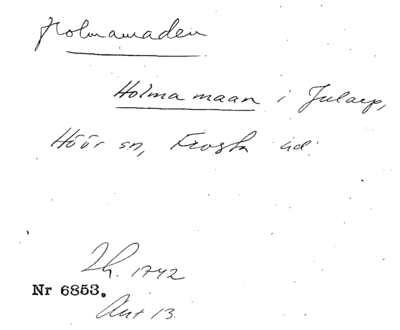 Holmamaden
Holma maan i Jularp,
Höör sn, Frosta hd.
Lh. 1742
Nr 6853.
Ant 13.